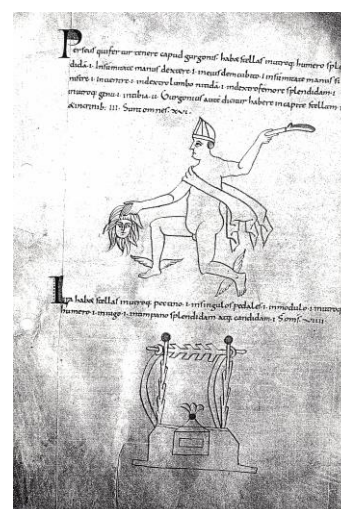 Perseus quifer tur tenere capud gurgonis. habet stellas inutroq; humero
dida .i. Insumitate manus dextere .i. ineius cubito .i. insumitate manus si
nistre .i. inventre .i. indextro lumbo nitida .i. indextrofemore splendidam .i.
inutroq; genu .i. intibia .ii. Gurgonius aute dicitur habere incapite stellam .i.
&crinib; .iii. Sunt omnes. xvi.
habet stellas inutroq; .i. insingulos pedales .i. inmodulo .i. inutroq;
humero .i. iniugo .i. splendidam atq; candidam .i. viiii.